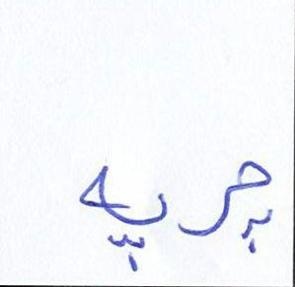 چرپه